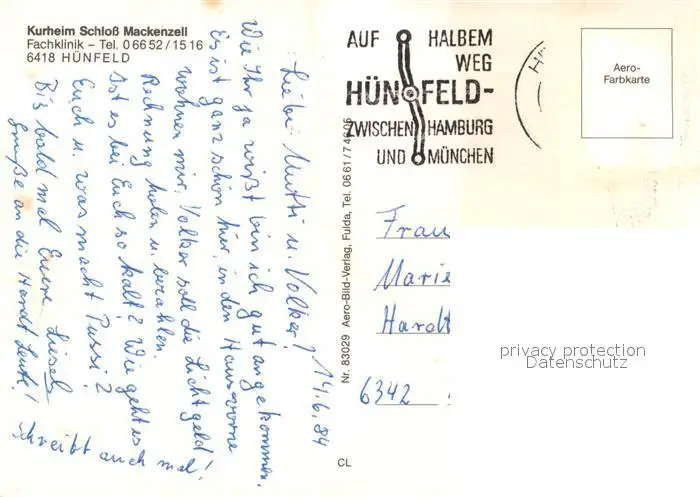 Kurheim Schloß Mackenzell
Fachklinik – Tel. 0 66 52 / 15 16
6418 HÜNFELD
14.6.84
Liebe Mutti u. Volker!
Wie Ihr ja wißt bin ich gut angekommen.
Es ist ganz schön hier, in den Haus vorne
wohnen wir, Volker soll die Lichtgeld
Rechnung holen u. bezahlen.
Ist es bei Euch so kalt? Wie geht es
Euch u. was macht Pussi?
Bis bald mal Eure Liesel
Grüße an die Hardt Leute!
Schreibt auch mal!
Nr. 83029 Aero-Bild-Verlag, Fulda, Tel. 06 61 / 7 46 06
CL
AUF HALBEM
WEG
HÜNFELD-
ZWISCHEN HAMBURG
UND MÜNCHEN
Aero-
Farbkarte
Frau
Marie
Hardt
6342
privacy protection
Datenschutz